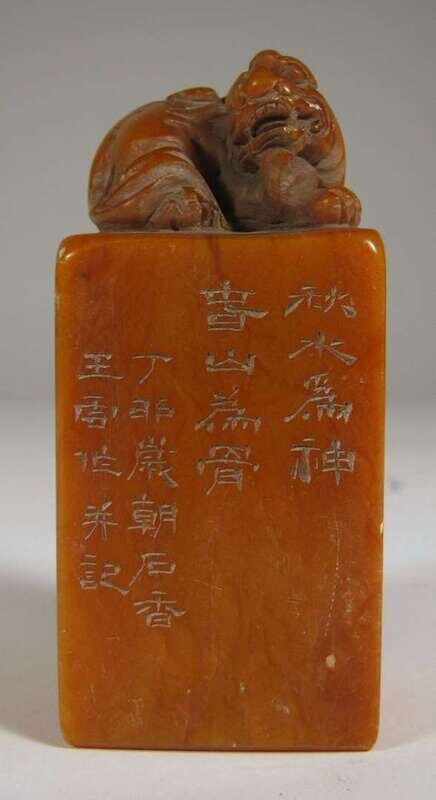 秋水爲神
春山為骨
丁卯歲朝石香
王雲作并記